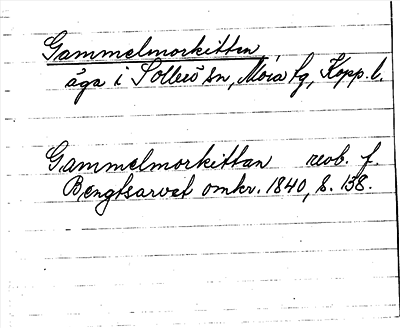 Gammelmorkittan,
äga i Sollerö sn, Mora tg, Kopp. l.
Gammelmorkittan reob. f.
Bengtsarvet omkr. 1840, s. 138.